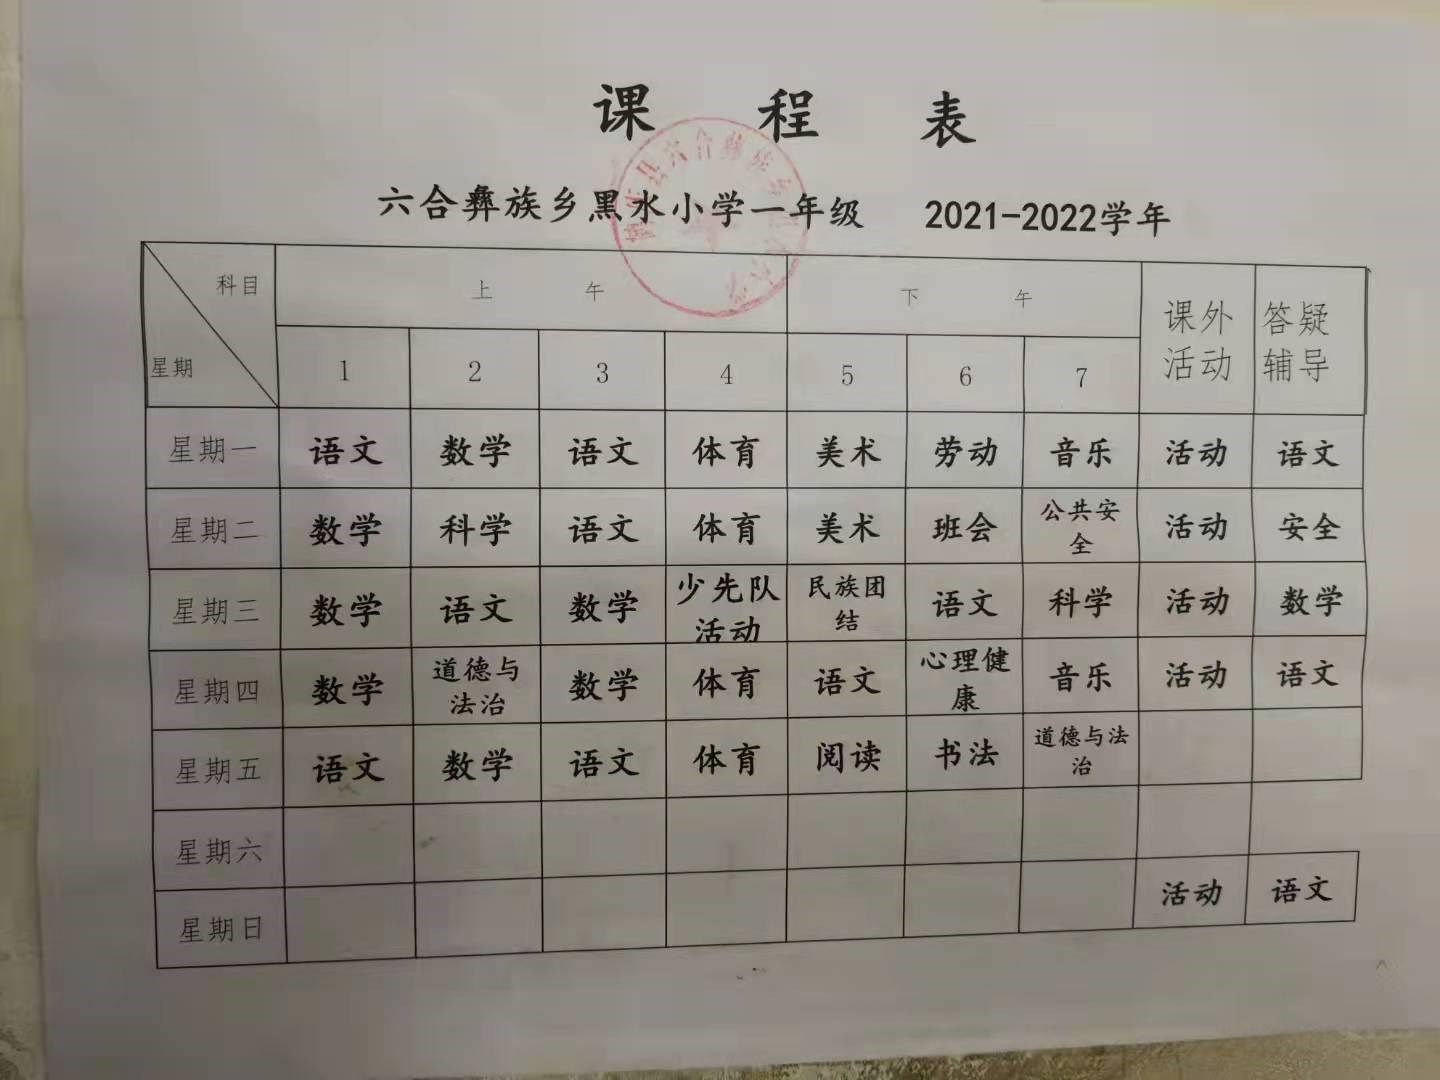 课 程 表
六合彝族乡黑水小学一年级 2021-2022学年
科目 上 午 下 午 课外活动 答疑辅导
星期 1 2 3 4 5 6 7
星期一 语文 数学 语文 体育 美术 劳动 音乐 活动 语文
星期二 数学 科学 语文 体育 美术 班会 公共安全 活动 安全
星期三 数学 语文 数学 少先队活动 民族团结 语文 科学 活动 数学
星期四 数学 道德与法治 数学 体育 语文 心理健康 音乐 活动 语文
星期五 语文 数学 语文 体育 阅读 书法 道德与法治
星期六
星期日 活动 语文